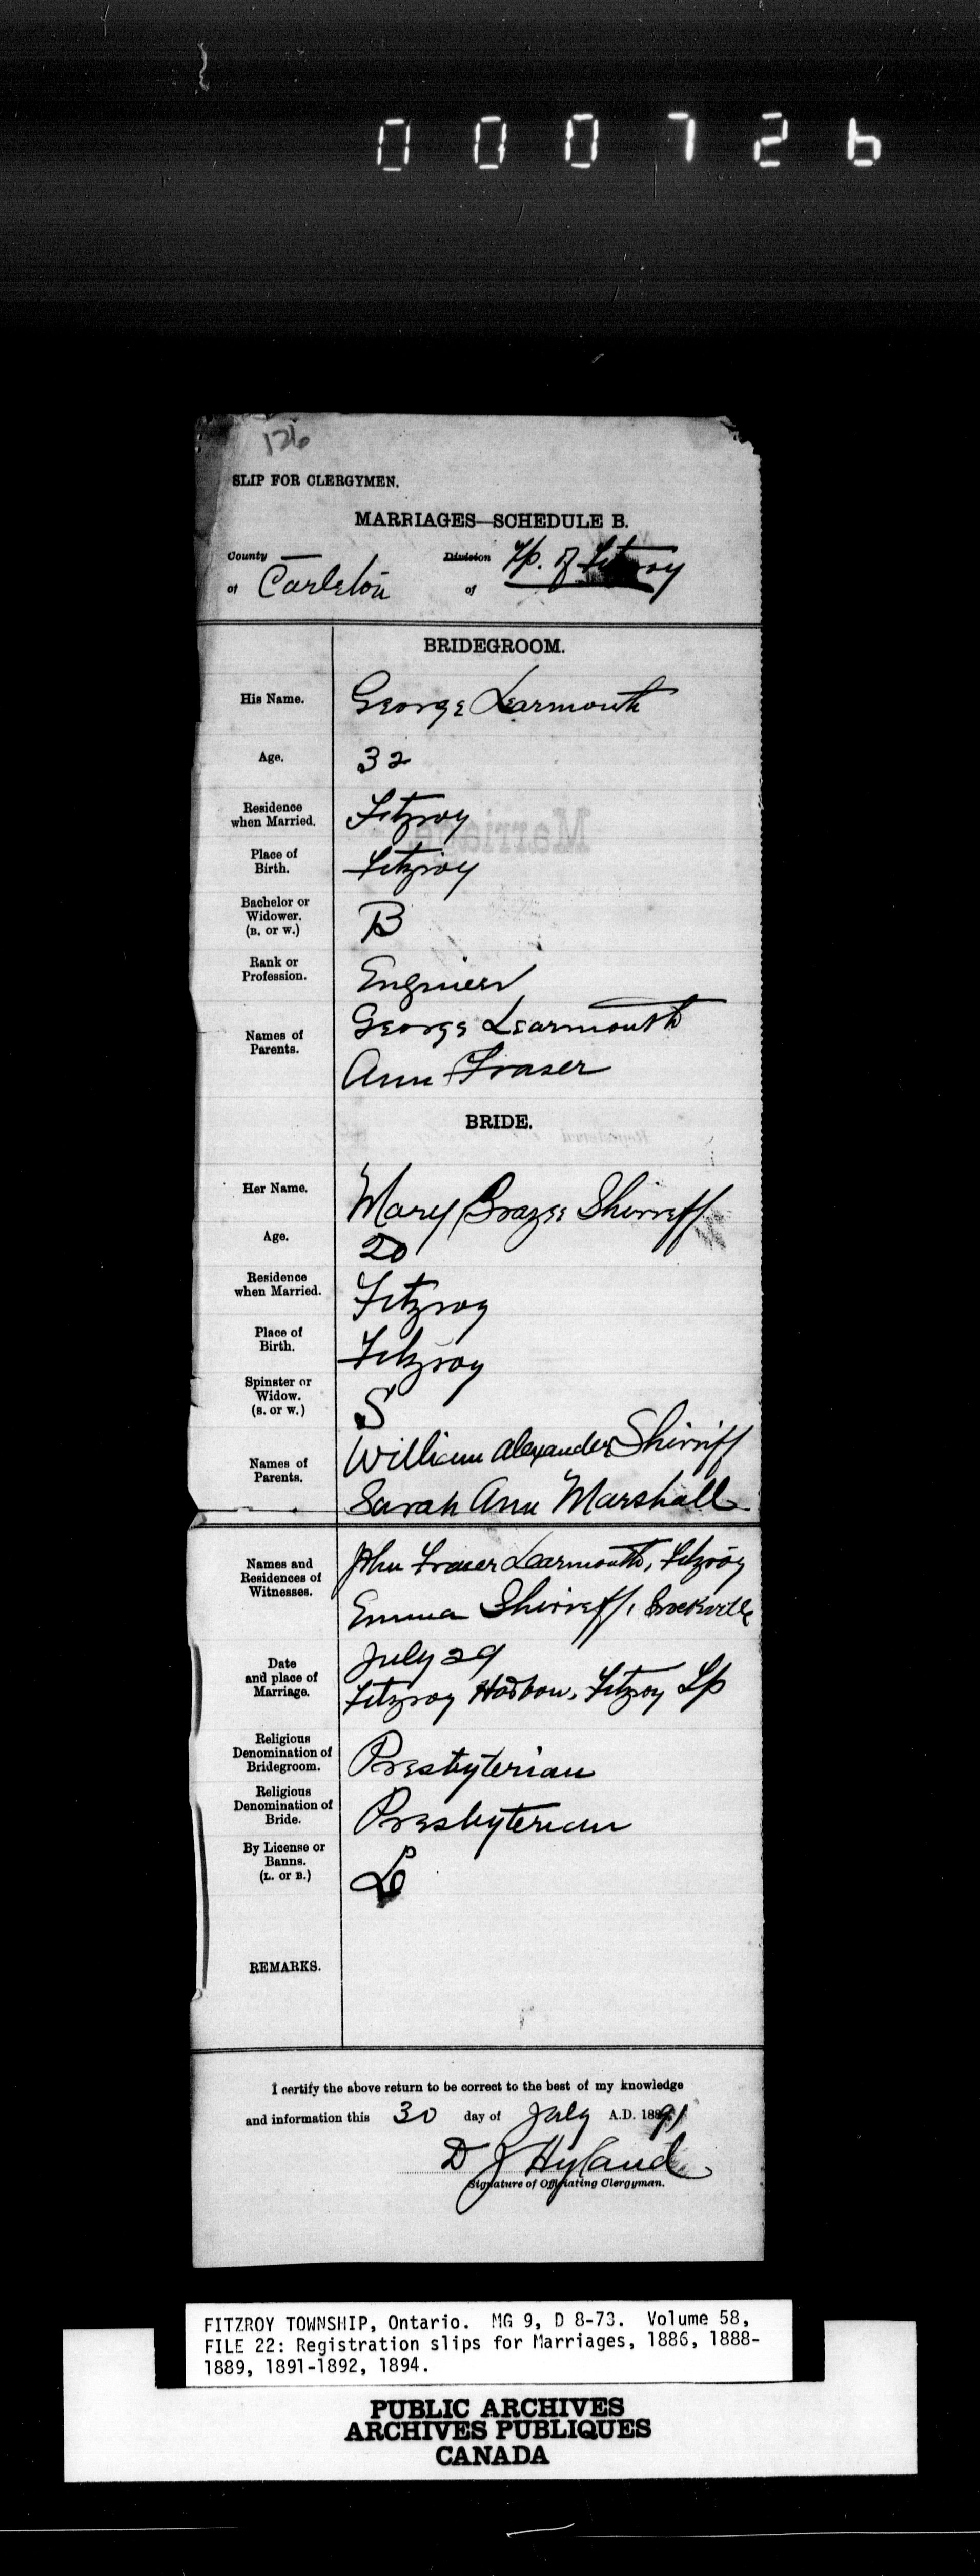 000726
126
SLIP FOR CLERGYMEN.
MARRIAGES—SCHEDULE B.
County of Carleton Division of Tp. of Fitzroy
BRIDEGROOM.
His Name. George Learmonth
Age. 32
Residence when Married. Fitzroy
Place of Birth. Fitzroy
Bachelor or Widower. (B. or W.) B
Rank or Profession. Engineer
Names of Parents. George Learmonth
Ann Fraser
BRIDE.
Her Name. Mary Shirreff
Age. 20
Residence when Married. Fitzroy
Place of Birth. Fitzroy
Spinster or Widow. (S. or W.) S
Names of Parents. William Alexander Shirriff
Sarah Ann Marshall
Names and Residences of Witnesses. John Fraser Learmonth, Fitzroy
Emma Shirreff, Brockville
Date and place of Marriage. July 29
Fitzroy Harbour, Fitzroy Tp
Religious Denomination of Bridegroom. Presbyterian
Religious Denomination of Bride. Presbyterian
By License or Banns. (L. or B.) L
REMARKS.
I certify the above return to be correct to the best of my knowledge
and information this 30 day of July A.D. 1891
D J Hyland
Signature of Officiating Clergyman.
FITZROY TOWNSHIP, Ontario. MG 9, D 8-73. Volume 58,
FILE 22: Registration slips for Marriages, 1886, 1888-
1889, 1891-1892, 1894.
PUBLIC ARCHIVES
ARCHIVES PUBLIQUES
CANADA